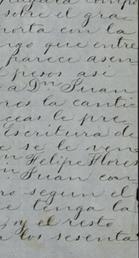 sobre el gra
porta con la
ngo que entre
parece asen
pesos asi
a Dn Juan
res la canti
ceas le pre
Escritura d
e se le ven
Felipe Flores
n Juan con
ro segun el
e tenga la
y el resto
a los sesenta